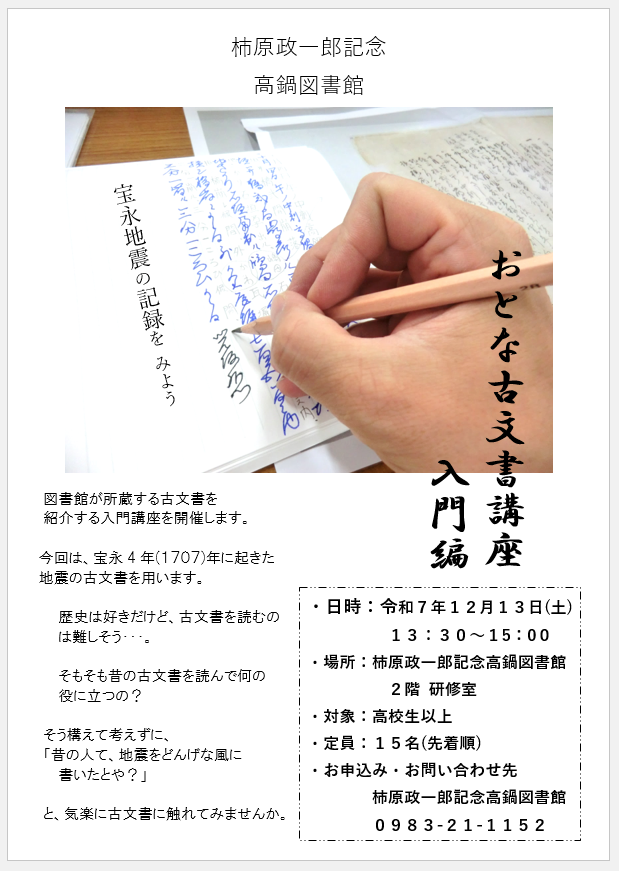 柿原政一郎記念
高鍋図書館
宝永地震の記録を みよう
おとな古文書講座
入門編
図書館が所蔵する古文書を
紹介する入門講座を開催します。
今回は、宝永４年(1707)年に起きた
地震の古文書を用います。
歴史は好きだけど、古文書を読むの
は難しそう･･･。
そもそも昔の古文書を読んで何の
役に立つの？
そう構えて考えずに、
「昔の人て、地震をどんげな風に
書いたとや？」
と、気楽に古文書に触れてみませんか。
・日時：令和７年１２月１３日(土)
１３：３０～15：00
・場所：柿原政一郎記念高鍋図書館
２階 研修室
・対象：高校生以上
・定員：１５名(先着順)
・お申込み・お問い合わせ先
柿原政一郎記念高鍋図書館
０９８３-２１-１１５２